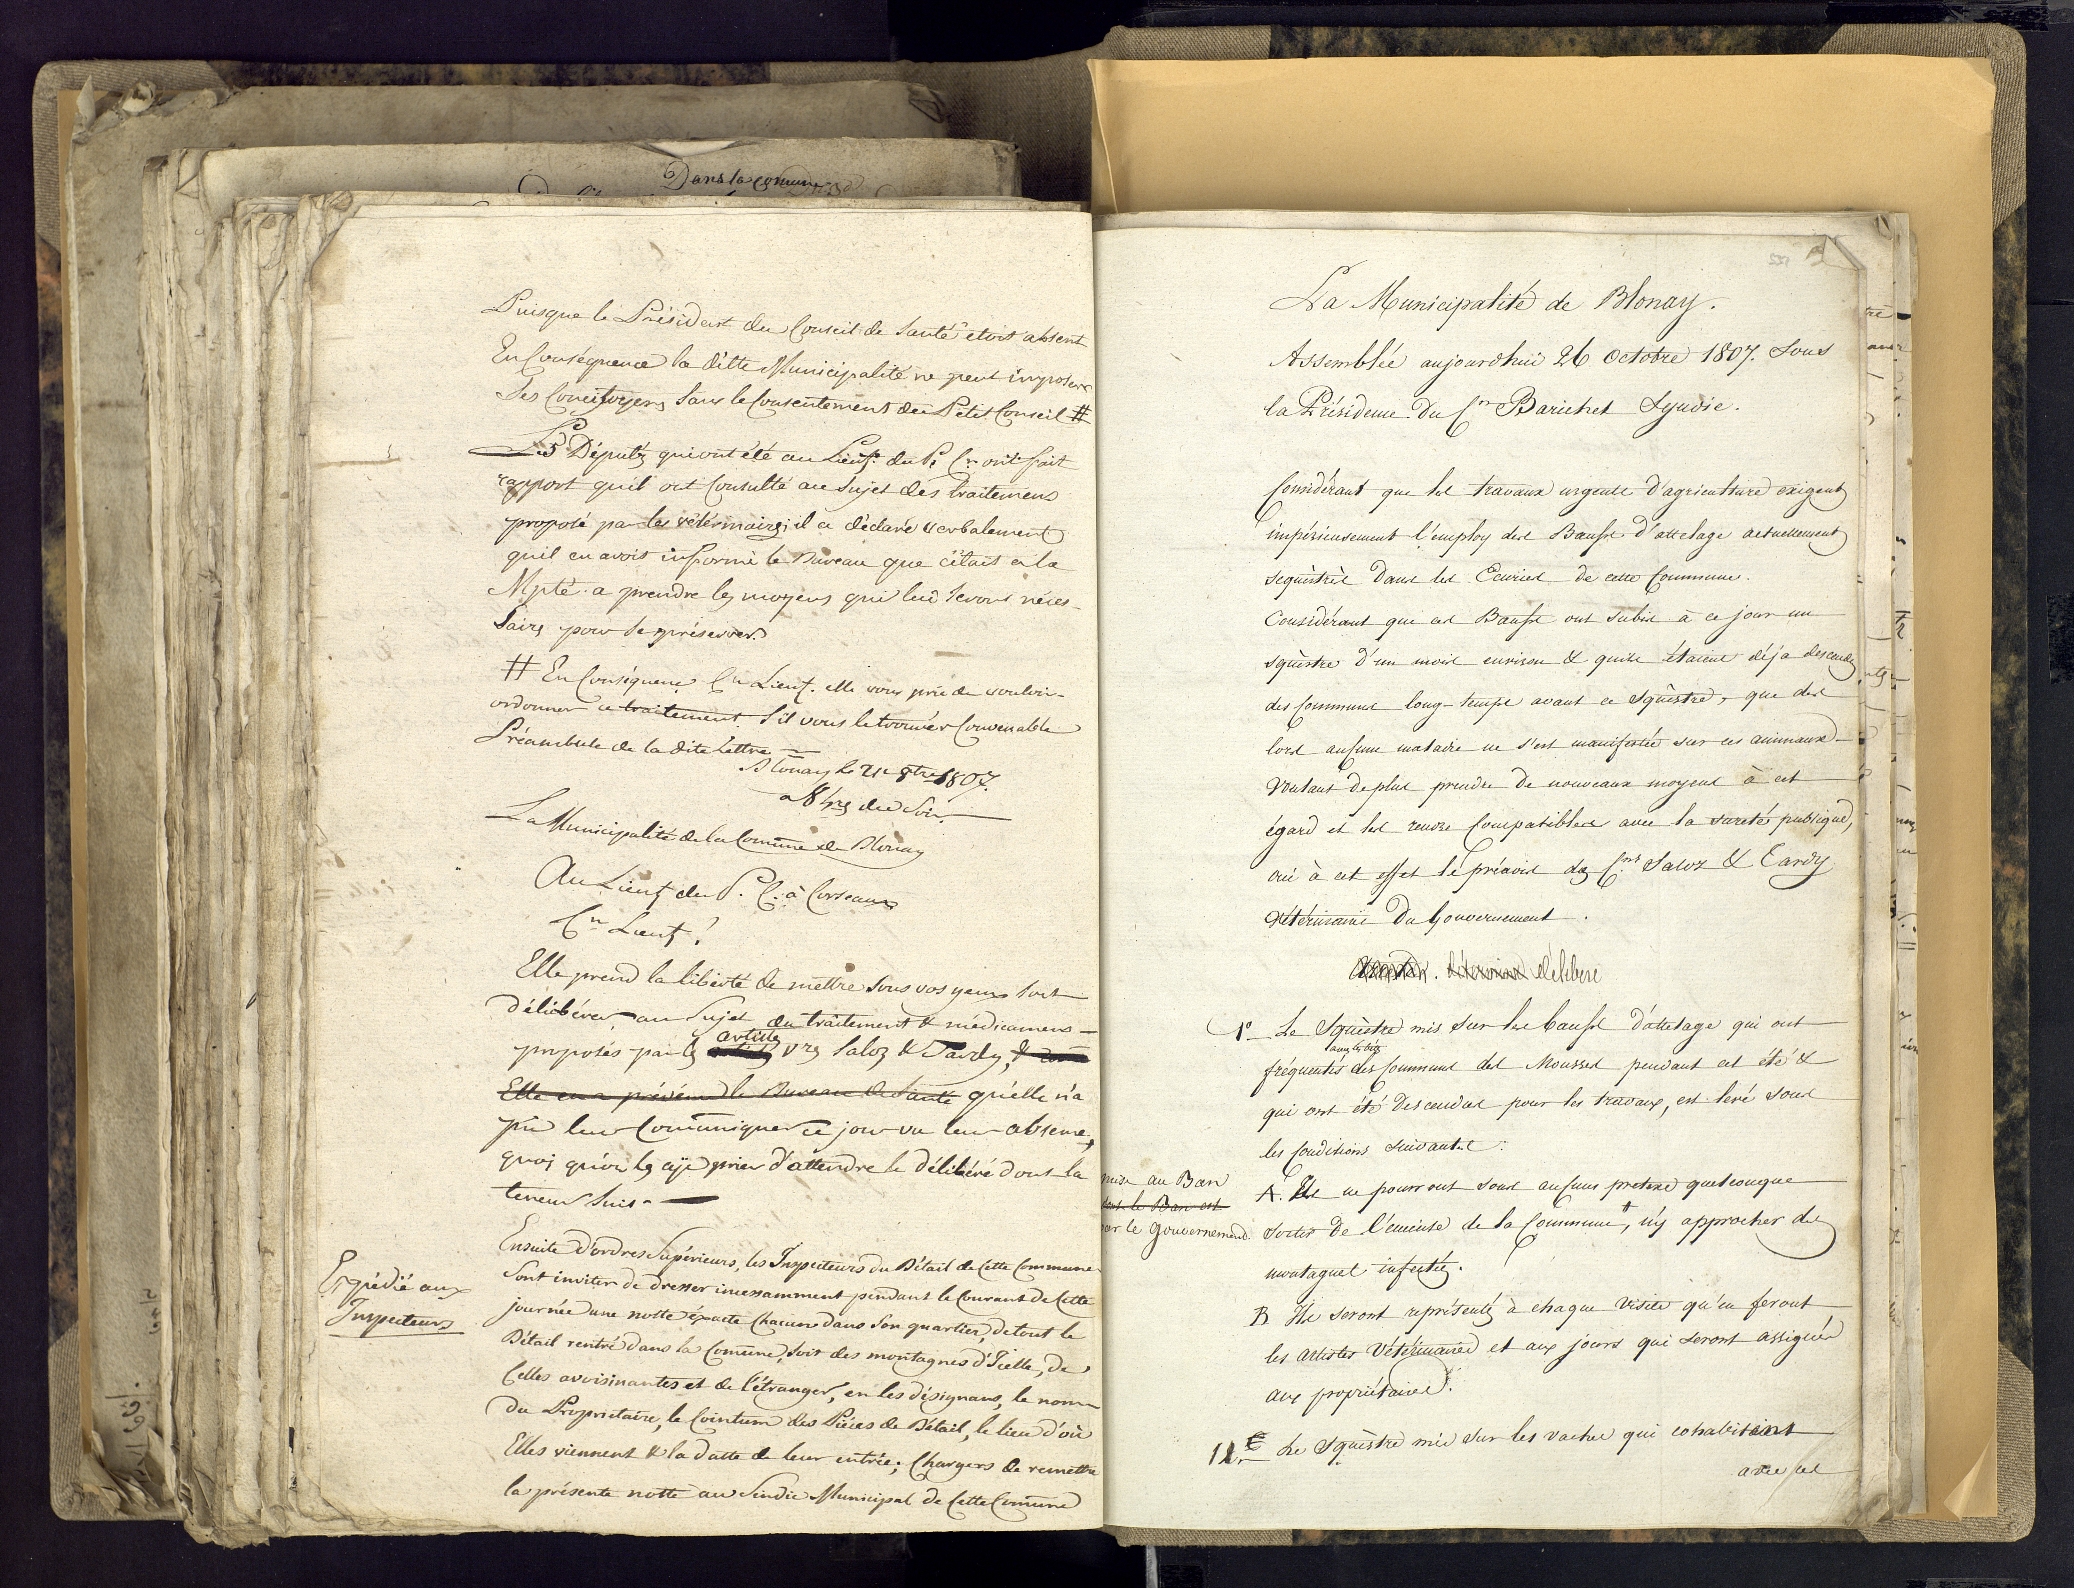 Dans la comune
Puisque le Président du Conseil de Santé etoit absent
En Conséquence la ditte Municipalité ne peut imposer
Ses Concitoyens Sans le Consentement du Petit Conseil #
Les Députés qui ont été au Lieut. du P. Cn. ont fait
rapport quil ont Consulté au Sujet des traitemens
proposé par les vétérinaires; il a déclaré verbalement
quil en avoit informé le Bureau que c'étoit a la
Mpté. a prendre les moyens qui lui seront néces-
saires pour se préserver.
# En Conséquence Cn Lieut. elle vous prie de vouloir
ordonner ce traitement S'il vous le trouver Convenable
Préambule de la dite Lettre
Blonay le 21e 8bre 1807.
a 8 hres du Soir.
La Municipalité de la Comune de Blonay
Au Lieut du P. C. à Corseaux
Cn Lieut!
Elle prend la liberté de mettre sous vos yeux Son
délibérer au Sujet du traitement & médicamens
artistes
proposés par les vres Saloz & Tardy, &
Elle en a prévenu le Bureau de Santé qu'elle n'a
pu leur Comuniquer ce jour vu leur absence,
quoi qu'on les aye prier d'attendre le délibéré dont la
teneur Suit
Expédié aux
Inspecteurs
Ensuite d'ordres Supérieurs, les Inspecteurs du Bétail de Cette Commune
Sont inviter de dresser incessamment pendant le Courant de Cette
journée une notte éxacte Chacun dans Son quartier, de tout le
Bétail rentré dans la Comune, Soit des montagnes d'Icelle, de
Celles avoisinantes et de l'étranger, en les désignans, le nom
du Proprietaire, le Cointum des Pièces de Bétail, le lieu d'où
Elles viennent & la datte de leur entrée; Chargers de remettre
la présente notte au Sindic Municipal de Cette Comune
La Municipalité de Blonay.
Assemblée aujourdhui 26 Octobre 1807. Sous
la Présidence du Cn Barichet Syndic.
Considérant que les travaux urgents d'agriculture exigent
impérieusement l'employ des Bœufs d'attelage actuellement
sequèstrés dans les Ecuries de cette Commune.
Considérant que ces Bœufs ont subis à ce jour un
sqûestre d'un mois environ & quils étaient déja descendu
des Communs long-temps avant ce Sqûestre, que dès
lors aucune maladie ne s'est manifestée sur ces animaux
Voulant de plus prendre de nouveaux moyens à cet
égard et les rendre Compatibles avec la sureté publique,
oui à cet effet le préavis des Cns Saloz & Tardy
Vétérinaire du Gouvernement.
délibère
1° Le Sqûestre mis sur les bœufs d'attelage qui ont
fréquentés des Communs des Mosses pendant cet été &
qui ont été descendus pour les travaux, est levé sous
les Conditions suivantes:
A. Ils ne pourront sous aucuns pretexe quelconque
sortir de l'enceinte de la Commune #, n'y approcher des
montagnes infectés.
mise au Ban
dont le Ban est
par le Gouvernement
B Ils seront représentés à chaque visite qu'en feront
les Artistes Vétérinaires et aux jours qui seront assignés
aux propriétaires.
II.e Le Sqûestre mis sur les vaches qui cohabitaient
avec ces